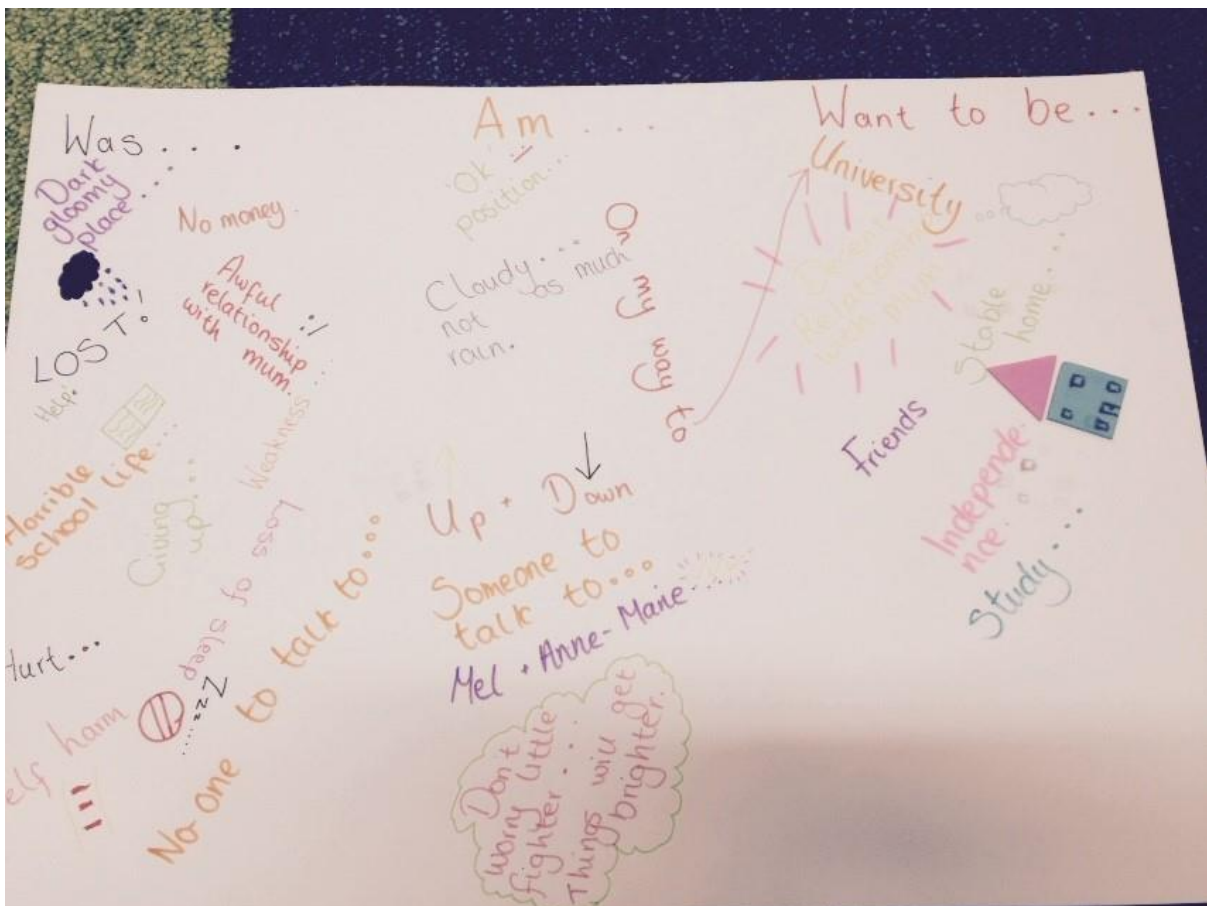 Was....
Dark
gloomy
place....
No money.
Awful
relationship
with mum. :/
...
LOST!
Help!
Horrible
school life...
Giving
up...
Weakness
Loss of sleep
....zzZ
No-one to talk to...
Hurt...
elf harm
Am....
'Ok'
position...
Cloudy... as much
not
rain.
On my way to
Up + Down
Someone to
talk to...
Mel + Anne-Marie.....
Don't
Worry little
fighter....
Things will get
brighter.
Want to be...
University
Relationship
with mum
Stable
home....
Friends
Independe
nce.
Study....